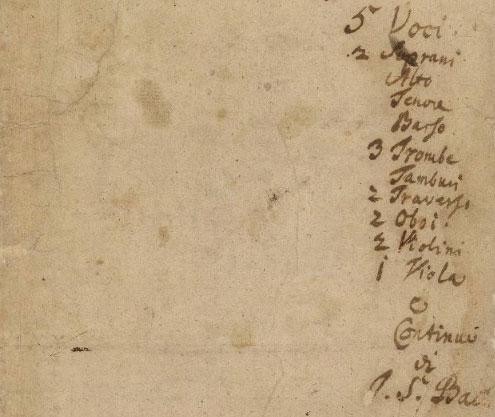 5 Voci.
2 Soprani
Alto
Tenore
Basso
3 Trombe
Tamburi
2 Traversi
2 Oboi
2 Violini
1 Viola
e
Continuo
di
J. S. Bac